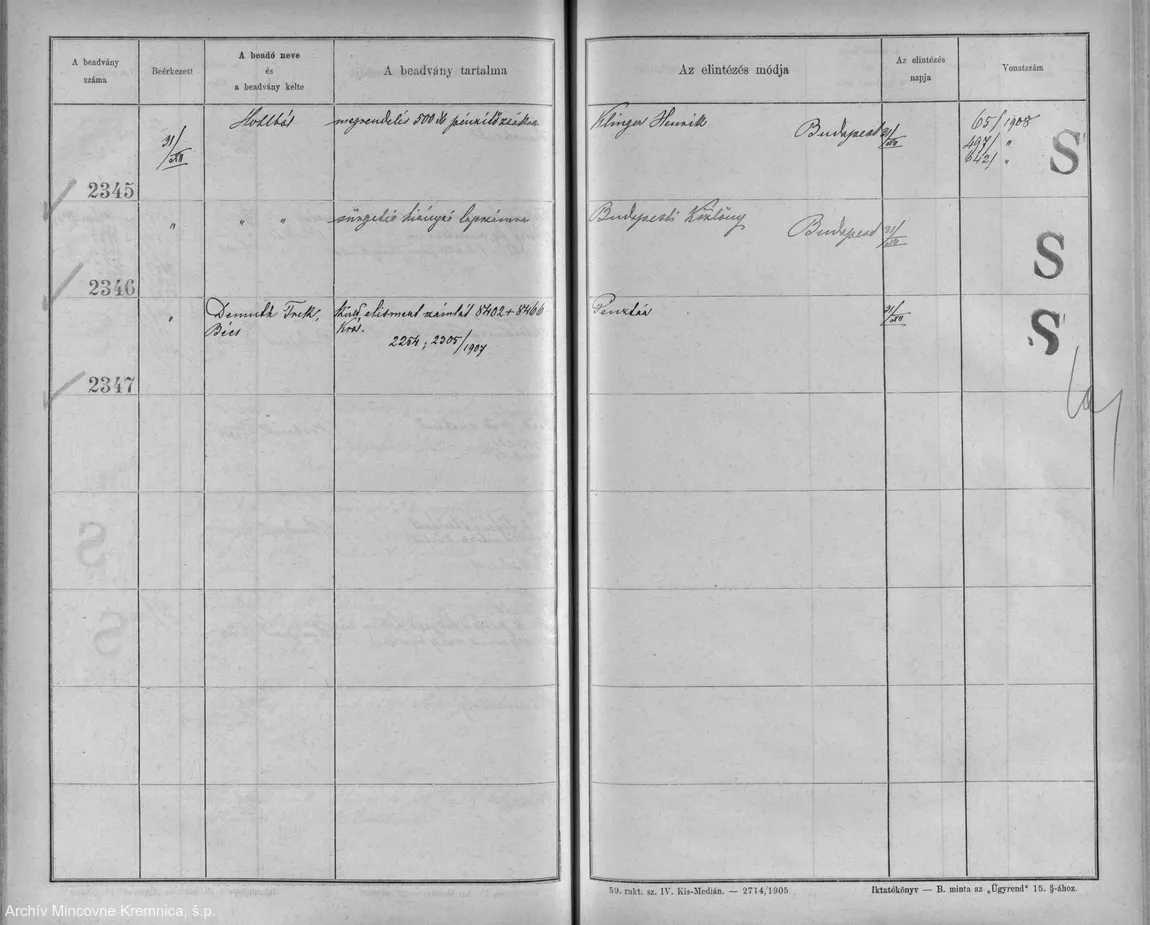 A beadvány száma
Beérkezett
A beadó neve és a beadvány kelte
A beadvány tartalma
Az elintézés módja
Az elintézés napja
Vonatszám
2345
31/XII
Hivatból
megrendelés 500 db pénzelőzsákra
Klinger Henrik
Budapest
31/XII
65/1908
497/ "
642/ "
S
2346
"
" "
sürgetés hiányzó lapszámra
Budapesti Közlöny
Budapest
31/XII
S
2347
"
Demuth Frek,
Bécs
küld elismert számlát 8402 + 8466
Król.
2254; 2305/1907
Pénztár
31/XII
S
59. rakt. sz. IV. Kis-Medián. — 2714/1905.
Iktatókönyv — B. minta az „Ügyrend" 15. §-ához.
Archív Mincovne Kremnica, š.p.